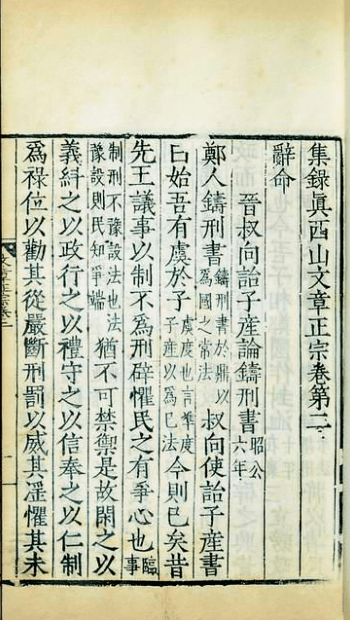 集錄眞西山文章正宗卷第二
辭命
晉叔向詒子產論鑄刑書昭公六年
鄭人鑄刑書鑄刑書於鼎以爲國之常法叔向使詒子產書
曰始吾有虞於子虞度也言準度子產以爲己法今則已矣昔
先王議事以制不爲刑辟懼民之有爭心也臨事
制刑不豫設法也法豫設則民知爭端猶不可禁禦是故閑之以
義糾之以政行之以禮守之以信奉之以仁制
爲祿位以勸其從嚴斷刑罰以威其淫懼其未